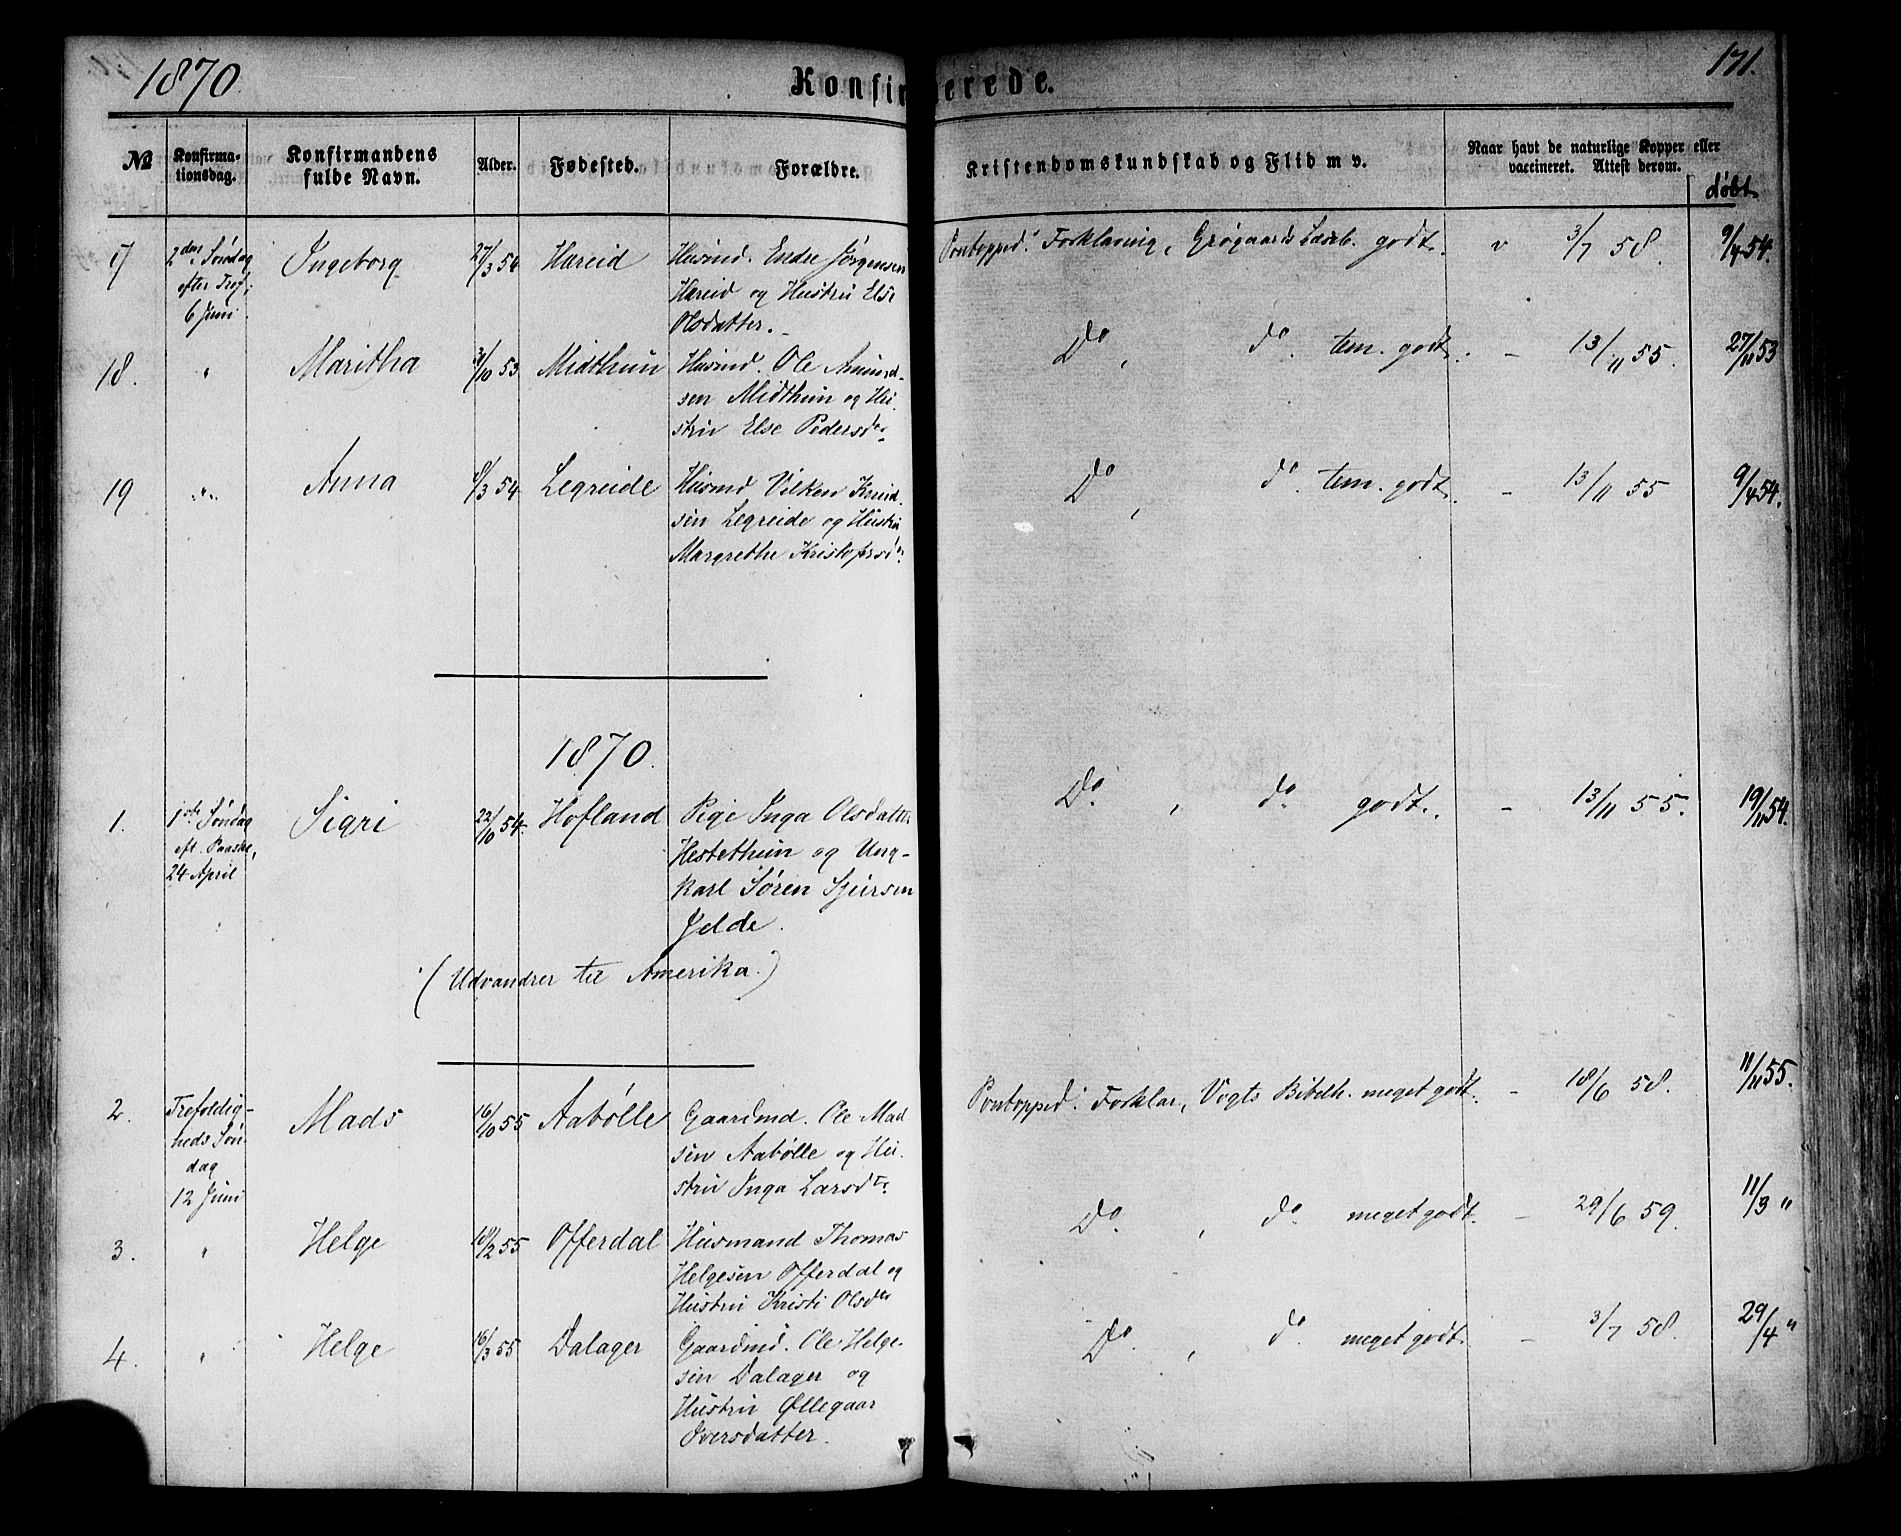 1870.
Konfirmerede.
171.
№
Konfirma-
tionsdag.
Konfirmandens
fulde Navn.
Alder.
Fødested.
Forældre.
Kristendomskundskab og Flid m v.
Naar havt de naturlige Kopper eller
vaccineret. Attest derom.
døbt
17 2den Søndag Ingeborg 27/3 54 Hareid Husmd. Endre Jørgensen Pontopped: Forklaring, Grøgaards Læseb. godt. v 3/7 58. 9/4 54.
efter Tref: Hareid og Hustru Else
6 Juni Olsdatter.
18. " Maritha 31/10 53 Midthun Husmd. Ole Amund- Do, do. tem. godt. - 13/11 55. 27/11 53
sen Midthun og Hu-
stru Else Pedersdr
19 " Anna 8/3 54 Legreide Husmd Vilken Knud- Do, do. tem. godt. - 13/11 55 9/4 54.
sen Legreide og Hustru
Margrethe Kristofersdr
1870.
1. 1ste Søndag Sigri 22/10 54. Hofland Pige Inga Olsdatter Do. , do. godt. - 13/11 55. 19/11 54.
eft. Paaske, Hestethun og Ung-
24 April karl Søren Sjursen
Jelde.
(Udvandrer til Amerika.)
2. Trefoldig- Mads 16/10 55 Aabølle Gaardmd. Ole Mad Pontopped: Forklar, Vogts Bibelh. meget godt. - 18/6 58. 11/11 55.
heds Søn- sen Aabølle og Hu-
dag stru Inga Larsdr
12 Juni
3. " Helge 18/2 55 Offerdal Husmand Thomas Do. , do. meget godt. - 29/6 59. 11/3 "
Helgesen Offerdal og
Hustru Kristi Olsdr
4. " Helge 16/3 55 Dalager Gaardmd. Ole Helge- Do. , do. meget godt. - 3/7 58. 29/4 "
sen Dalager og
Hustru Øllegaar
Iversdatter.